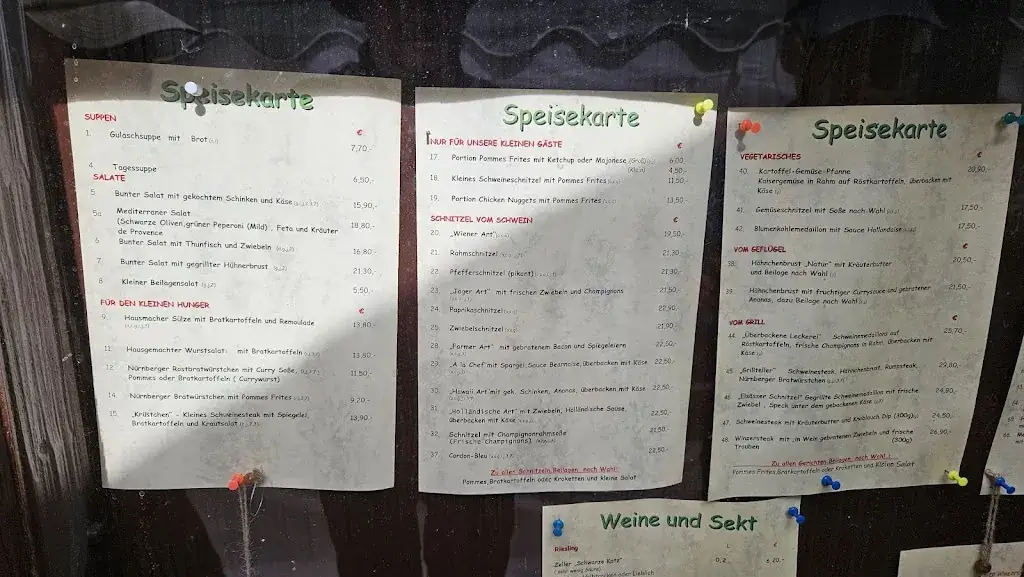 Speisekarte
SUPPEN
€
1. Gulaschsuppe mit Brot
7,70,-
4. Tagessuppe
6,50,-
SALATE
5. Bunter Salat mit gekochtem Schinken und Käse 15,90,-
5a Mediterraner Salat
(Schwarze Oliven,grüner Peperoni (Mild), Feta und Kräuter 18,80,-
de Provence
6 Bunter Salat mit Thunfisch und Zwiebeln 16,80,-
7. Bunter Salat mit gegrillter Hühnerbrust 21,30,-
8 Kleiner Beilagensalat 5,50,-
FÜR DEN KLEINEN HUNGER €
9. Hausmacher Sülze mit Bratkartoffeln und Remoulade 13,80,-
11. Hausgemachter Wurstsalat mit Bratkartoffeln 13,80,-
12. Nürnberger Rostbratwürstchen mit Curry Soße,
Pommes oder Bratkartoffeln ( Currywurst) 11,50,-
14. Nürnberger Bratwürstchen mit Pommes Frites 9,20,-
15. „Krüstchen" - Kleines Schweinesteak mit Spiegelei, 13,90,-
Bratkartoffeln und Krautsalat
Speisekarte
NUR FÜR UNSERE KLEINEN GÄSTE €
17. Portion Pommes Frites mit Ketchup oder Majonese (Groß) 6,00
(Klein) 4,50,-
18. Kleines Schweineschnitzel mit Pommes Frites 11,50,-
19. Portion Chicken Nuggets mit Pommes Frites 13,50,-
SCHNITZEL VOM SCHWEIN €
20. „Wiener Art" 19,50,-
21. Rahmschnitzel 21,30,-
22. Pfefferschnitzel (pikant) 21,30,-
23. „Jäger Art" mit frischen Zwiebeln und Champignons 21,50,-
24. Paprikaschnitzel 22,90,-
25. Zwiebelschnitzel 21,90,-
28. „Farmer Art" mit gebratenem Bacon und Spiegeleiern 22,50,-
29. „A la Chef" mit Spargel,Sauce Bearnaise,überbacken mit Käse 22,50,-
30. „Hawaii Art"mit gek. Schinken, Ananas, überbacken mit Käse 22,50,-
31. „Holländische Art" mit Zwiebeln, Holländische Sauce, 22,50,-
überbacken mit Käse
32. Schnitzel mit Champignonrahmsoße 21,50,-
(Frische Champignons)
37. Cordon-Bleu 22,50,-
Zu allen Schnitzeln Beilagen nach Wahl:
Pommes,Bratkartoffeln oder Kroketten und kleine Salat
Speisekarte
VEGETARISCHES €
40. Kartoffel-Gemüse-Pfanne 20,90,-
Kaisergemüse in Rahm auf Röstkartoffeln, überbacken mit
Käse
41. Gemüseschnitzel mit Soße nach Wahl 17,50,-
42. Blumenkohlmedaillon mit Sauce Hollandaise 17,50,-
VOM GEFLÜGEL €
38. Hähnchenbrust „Natur" mit Kräuterbutter 20,50,-
und Beilage nach Wahl
39. Hähnchenbrust mit fruchtiger Currysauce und gebratener 21,50,-
Ananas, dazu Beilage nach Wahl
VOM GRILL €
44. „Überbackene Leckerei" Schweinemedaillons auf 25,70,-
Röstkartoffeln, frische Champignons in Rahm, überbacken mit
Käse
45. „Grillteller" Schweinesteak, Hähnchenbrust, Rumpsteak, 29,80,-
Nürnberger Bratwürstchen
46. „Elsässer Schnitzel" Gegrillte Schweinemedaillon mit frische 24,90,-
Zwiebel, Speck unter dem gebackenen Käse
47. Schweinesteak mit Kräuterbutter und Knoblauch Dip (300g) 24,50,-
48. Winzersteak mit ,in Wein gebratenen Zwiebeln und frische 26,90,-
Trauben (300g)
Zu allen Gerichten Beilagen nach Wahl:
Pommes Frites,Bratkartoffeln oder Kroketten und Kleine Salat
Weine und Sekt
Riesling L €
Zeller „Schwarze Katz" 0,2 6,20,-